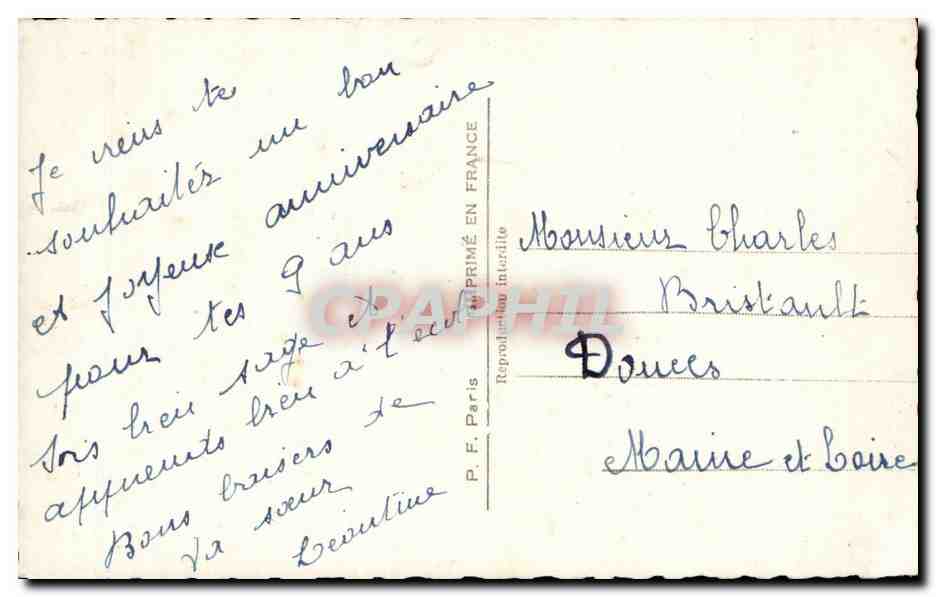 Je viens te
souhaités un bon
et joyeuse anniversaire
pour tes 9 ans
Sois bien sage et
apprends bien à l'école
Bons baisers de
ta sœur
Léontine
P. F. Paris IMPRIMÉ EN FRANCE
Reproduction interdite
CPAPHIL
Monsieur Charles
Bristault
Douces
Maine et Loire